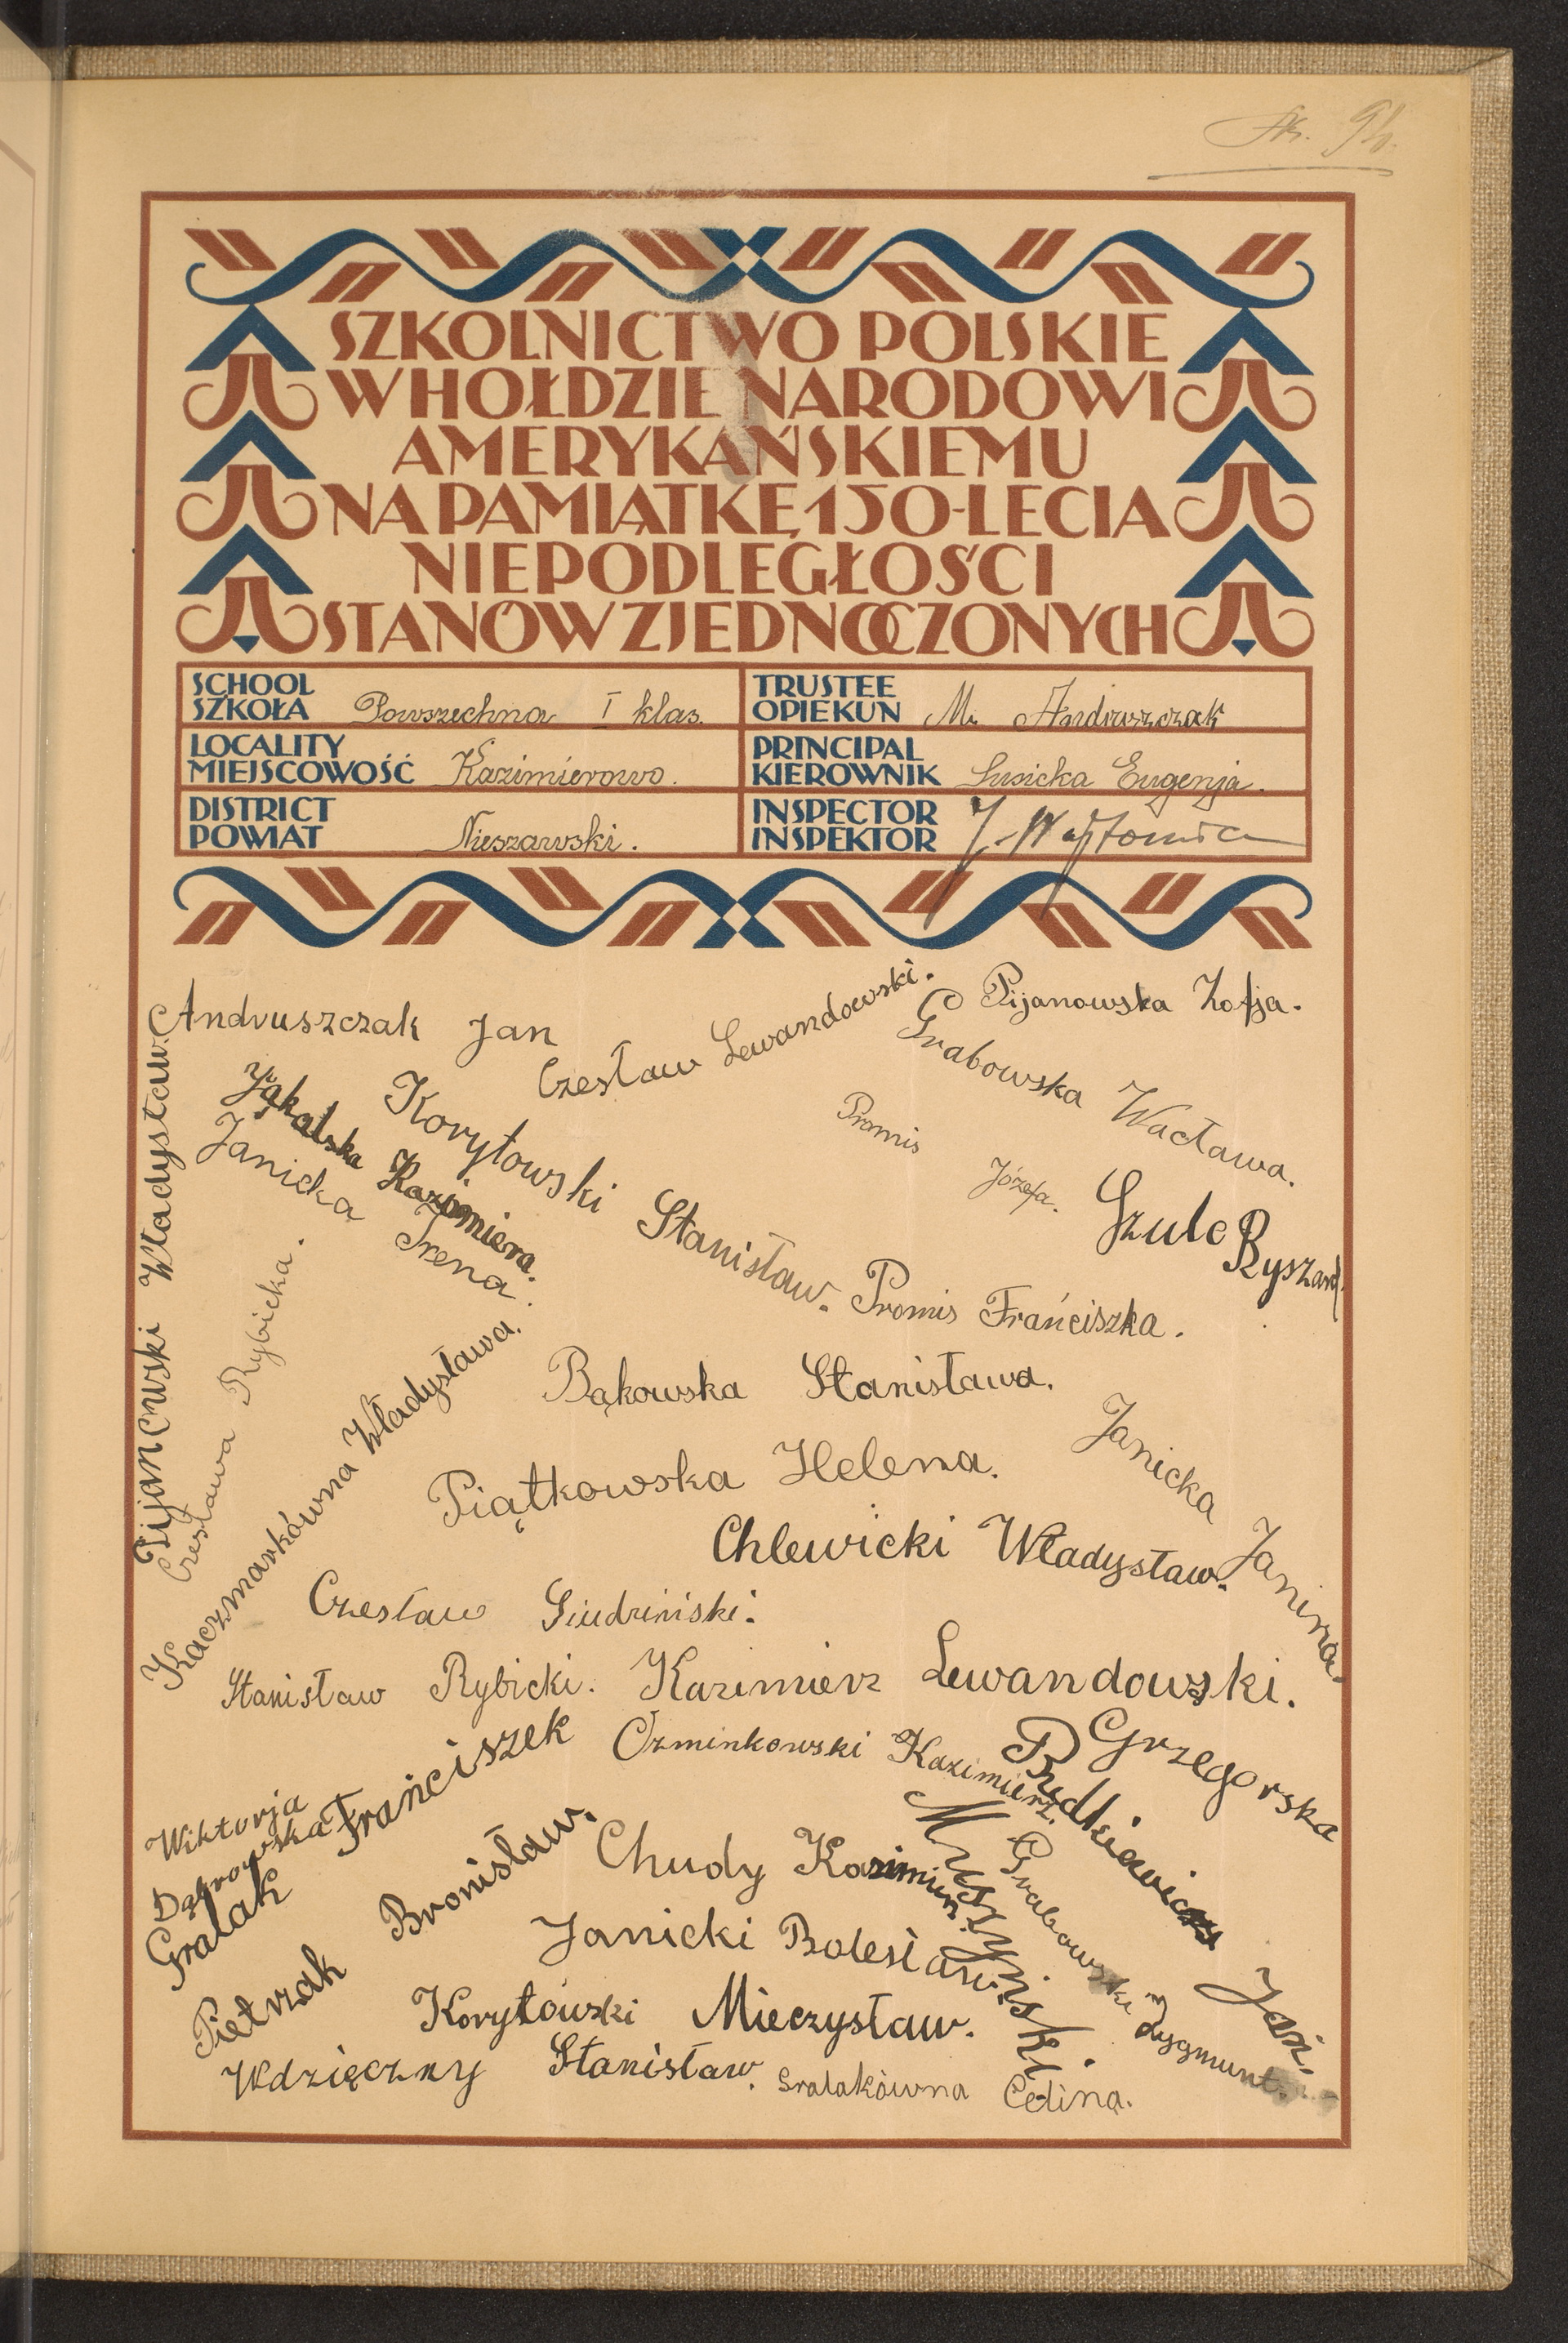 SZKOLNICTWO POLSKIE
W HOŁDZIE NARODOWI
AMERYKAŃSKIEMU
NA PAMIĄTKĘ 150-LECIA
NIEPODLEGŁOŚCI
STANÓW ZJEDNOCZONYCH
SCHOOL
SZKOŁA Powszechna I klas.
TRUSTEE
OPIEKUN
LOCALITY
MIEJSCOWOŚĆ Kazimierowo.
PRINCIPAL
KIEROWNIK Eugenja.
DISTRICT
POWIAT Nieszawski.
INSPECTOR
INSPEKTOR
Andruszczak Jan
Czesław Lewandowski.
Pijanowska Zofja.
Grabowska Wacława.
Pijanowski Władysław.
Jąkalska Kazimiera.
Korytowski Stanisław.
Janicka Irena.
Promis Józefa.
Szulc Ryszard.
Promis Frańciszka.
Czesława Rybicka.
Kaczmarkówna Władysława.
Bąkowska Stanisława.
Janicka Janina.
Piątkowska Helena.
Chlewicki Władysław.
Czesław Siudziński.
Stanisław Rybicki.
Kazimierz Lewandowski.
Grzegorska
Ozminkowski Kazimierz.
Budkiewicz Jan.
Wiktorja
Dąbrowska
Gralak Frańciszek
Muszyński.
Chudy Kazimierz.
Grabowski Zygmunt.
Pietrzak Bronisław.
Janicki Bolesław.
Korytowski Mieczysław.
Wdzięczny Stanisław.
Gralakówna Celina.